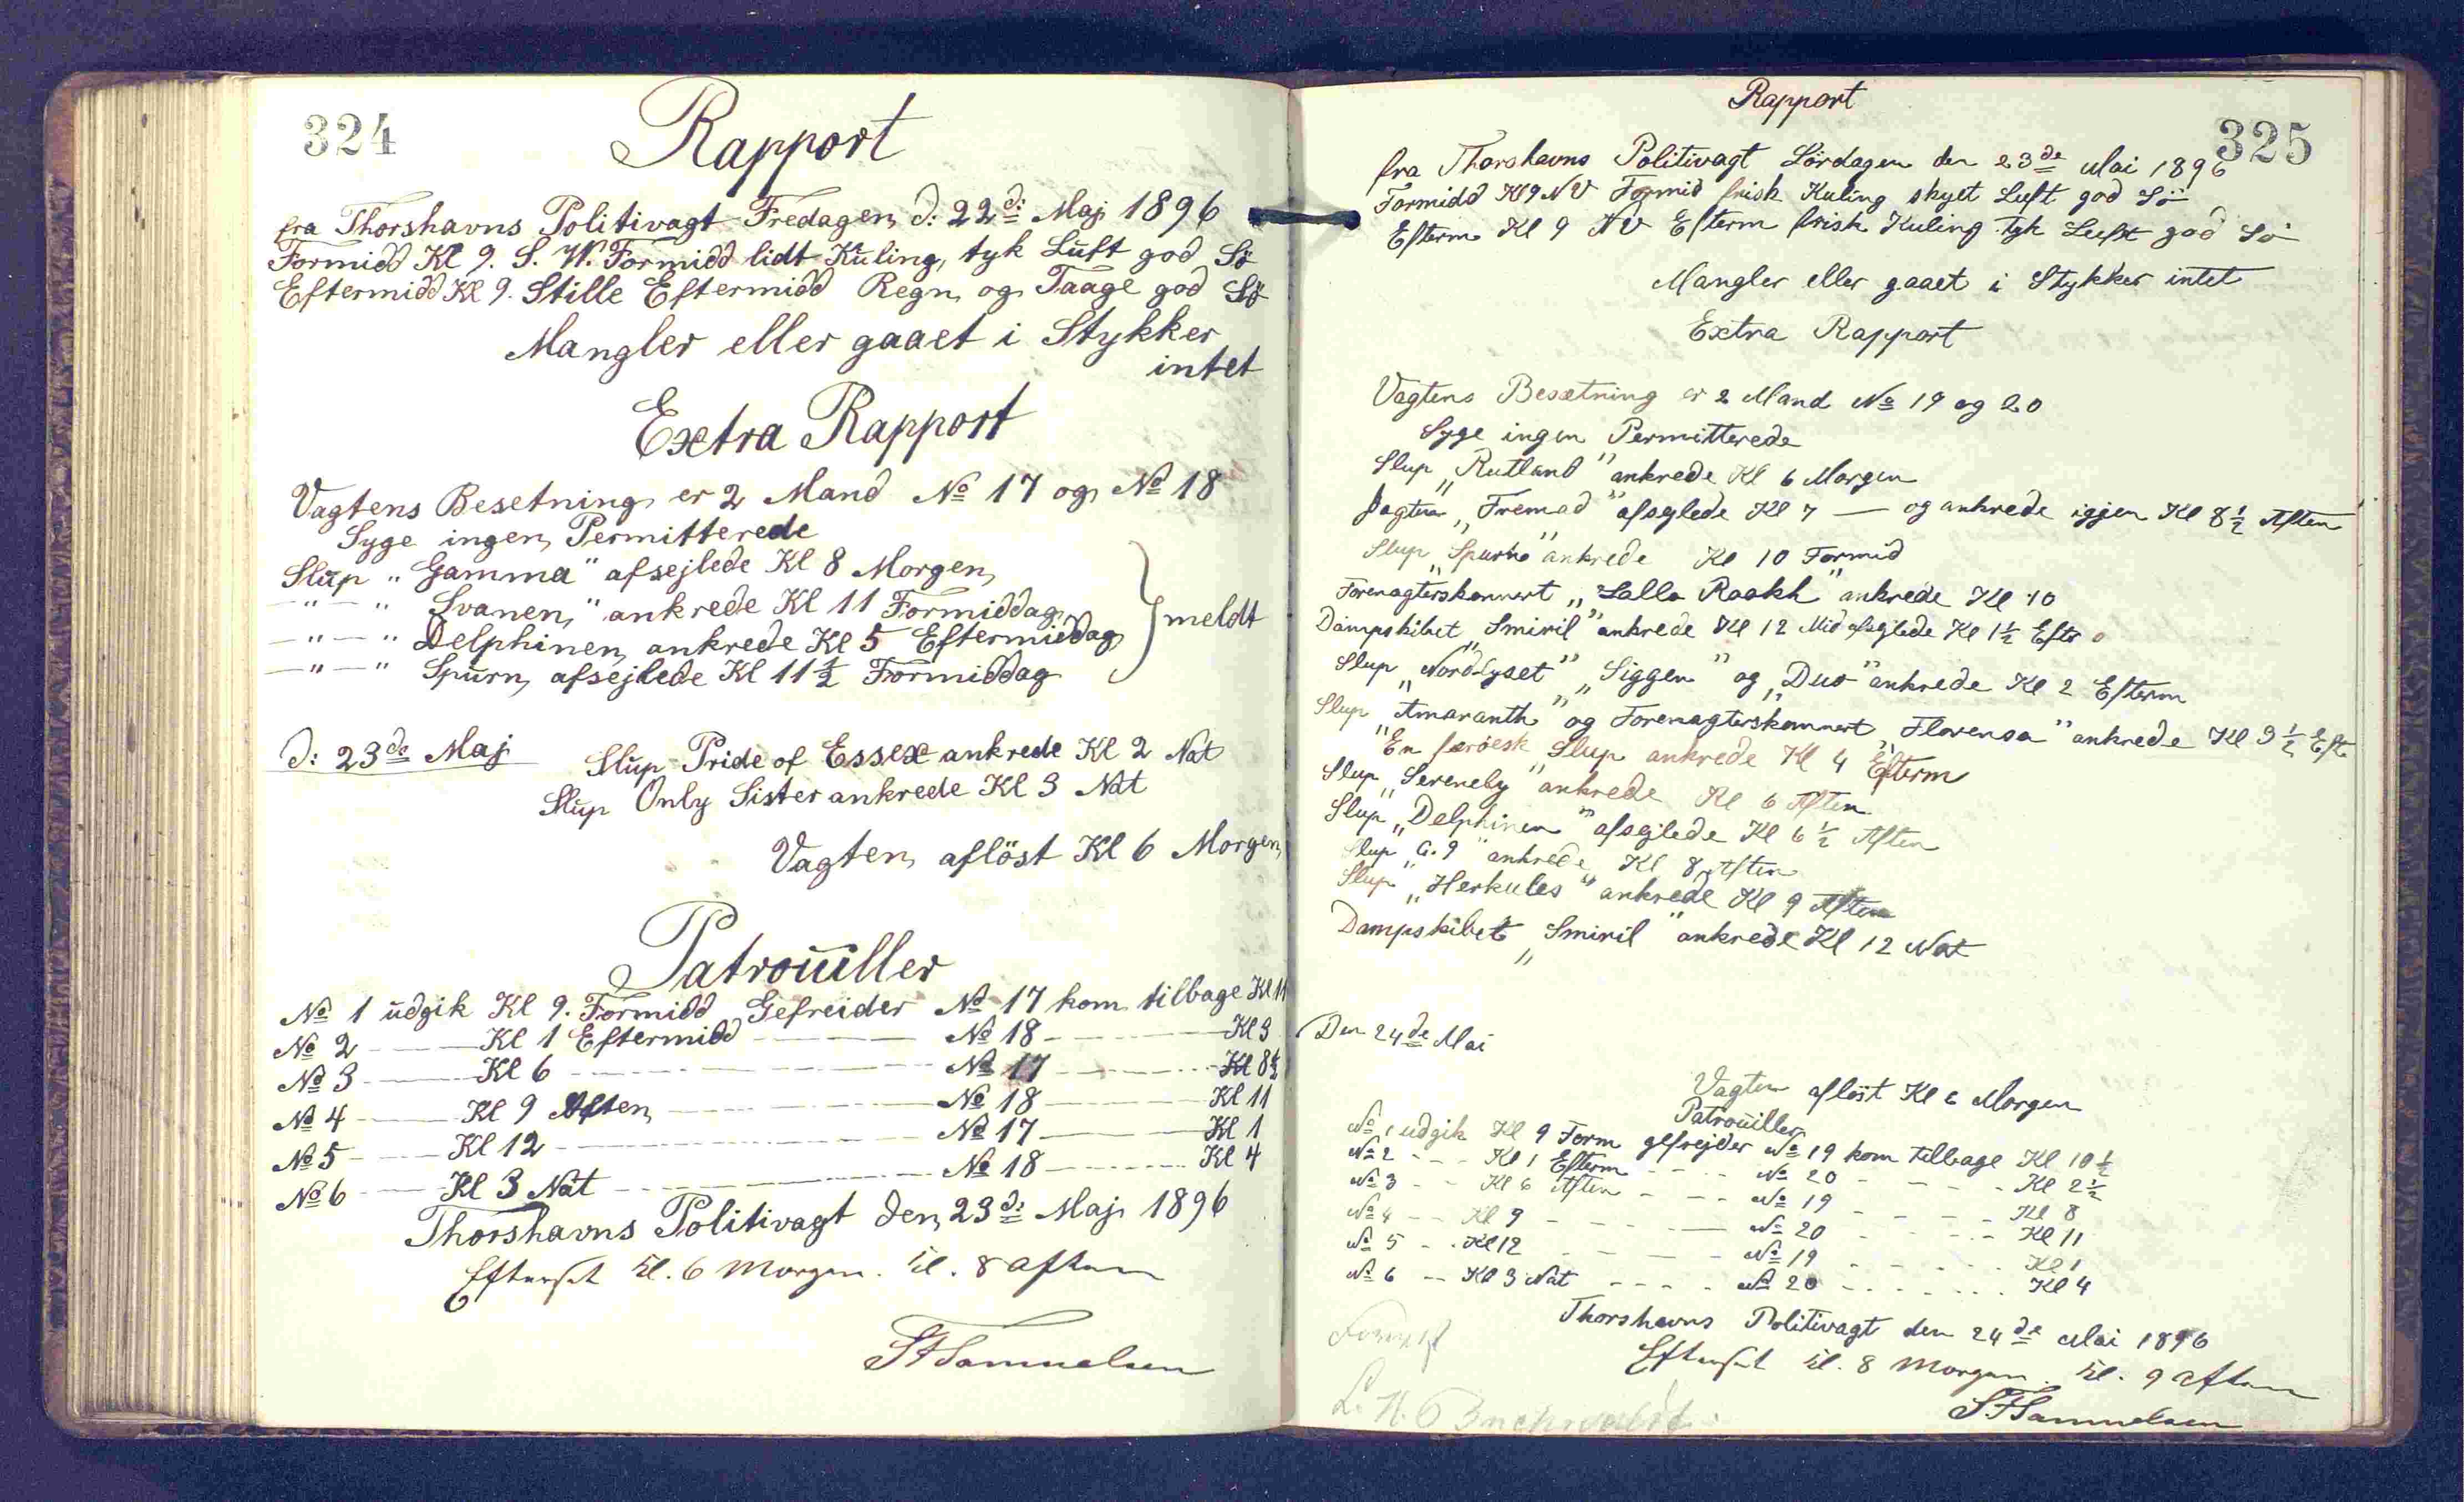 324
Rapport
fra Thorshavns Politivagt Fredagen d: 22d: Maj 1896
Formidd Kl 9. S. W. Formidd lidt Kuling, tyk Luft god Sö
Eftermidd Kl 9. Stille Eftermidd Regn og Taage god Sö
Mangler eller gaaet i Stykker
intet
Extra Rapport
Vagtens Besetning er 2 Mand No 17 og No 18
Syge ingen Permitterede
Slup „ Gamma" afsejlede Kl 8 Morgen
—"—" Svanen" ankrede Kl 11 Formiddag
—"—" Delphinen ankrede Kl 5 Eftermiddag
—"—" Spurn afsejlede Kl 11½ Formiddag
meldt
d: 23de Maj Slup Pride of Essex ankrede Kl 2 Nat
Slup Only Sister ankrede Kl 3 Nat
Vagten aflöst Kl 6 Morgen
Patrouiller
No 1 udgik Kl 9. Formidd Gefreider No 17 kom tilbage Kl 11
No 2 — Kl 1 Eftermidd — No 18 — Kl 3
No 3 — Kl 6 — No 17 — Kl 8½
No 4 — Kl 9 Aften — No 18 — Kl 11
No 5 — Kl 12 — No 17 — Kl 1
No 6 — Kl 3 Nat — No 18 — Kl 4
Thorshavns Politivagt den 23d: Maj 1896
Efterset kl. 6 Morgen. kl. 8 Aften
Samuelsen
Rapport
325
fra Thorshavns Politivagt Lördagen den 23de Mai 1896
Formidd Kl 9 NV Formid frisk Kuling skyet Luft god Sö
Efterm Kl 9 NV Efterm frisk Kuling tyk Luft god Sö
Mangler eller gaaet i Stykker intet
Extra Rapport
Vagtens Besætning er 2 Mand No 19 og 20
Syge ingen Permitterede
Slup „Rutland" ankrede Kl 6 Morgen
Jagten „Fremad" afsejlede Kl 7 — og ankrede igjen Kl 8½ Aften
Slup „Spurn" ankrede Kl 10 Formid
Forenagterskonnert „Lalla Rookh" ankrede Kl 10
Dampskibet „Smiril" ankrede Kl 12 Mid afsejlede Kl 1½ Eft
Slup „Nordlyset" „Siggen" og „Duo" ankrede Kl 2 Efterm
Slup „Amaranth" og Forenagterskonnert „Florensa" ankrede Kl 3½ Eft
En færöesk Slup ankrede Kl 4 Efterm
Slup „Sereneby" ankrede Kl 6 Aften
Slup „Delphinen" afsejlede Kl 6½ Aften
Slup „G. 9" ankrede Kl 8 Aften
Slup „Herkules" ankrede Kl 9 Aften
Dampskibet „Smiril" ankrede Kl 12 Nat
Den 24de Mai
Vagten aflöst Kl 6 Morgen
Patrouiller
No 1 udgik Kl 9 Form gefrejder No 19 kom tilbage Kl 10½
No 2 - - - Kl 1 Efterm - - - - No 20 - - - - Kl 2½
No 3 - - Kl 6 Aften - - - No 19 - - - - Kl 8
No 4 - - Kl 9 - - - - No 20 - - - - Kl 11
No 5 - - Kl 12 - - - - No 19 - - - - Kl 1
No 6 - - Kl 3 Nat - - - - No 20 - - - - Kl 4
Thorshavns Politivagt den 24de Mai 1896
Efterset kl. 8 Morgen. kl. 9 Aften
Samuelsen